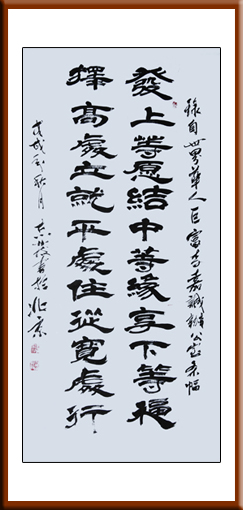 錄自世界華人巨富李嘉誠辦公室条幅
發上等愿結中等緣享下等福
擇高處立就平處住從寬處行
戊戌年秋月